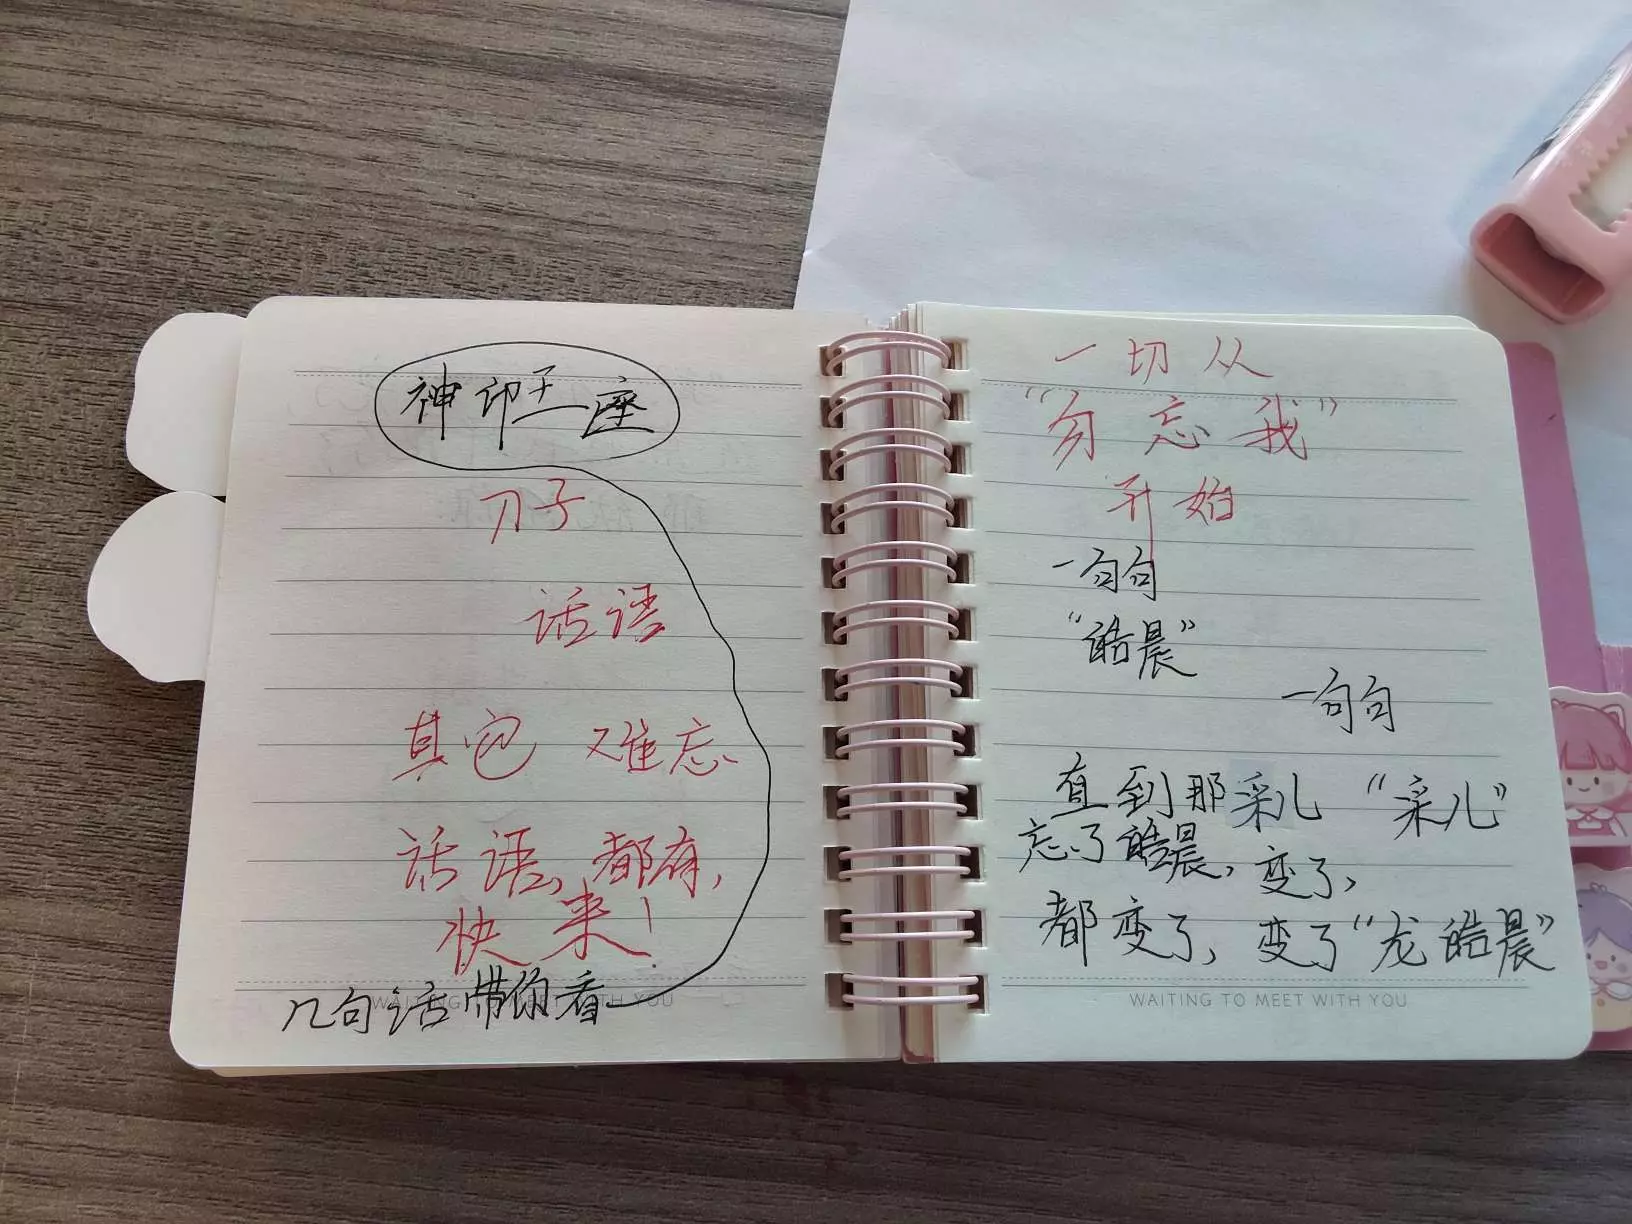 神印王座
刀子
话语
其它 难忘
话语,都有,
快来!
几句话带你看
WAITING MEET WITH YOU
一切从
“勿忘我”
开始
一句句
“皓晨”
一句句
直到那采儿 “采儿”
忘了皓晨,变了,
都变了,变了“龙皓晨”
WAITING TO MEET WITH YOU